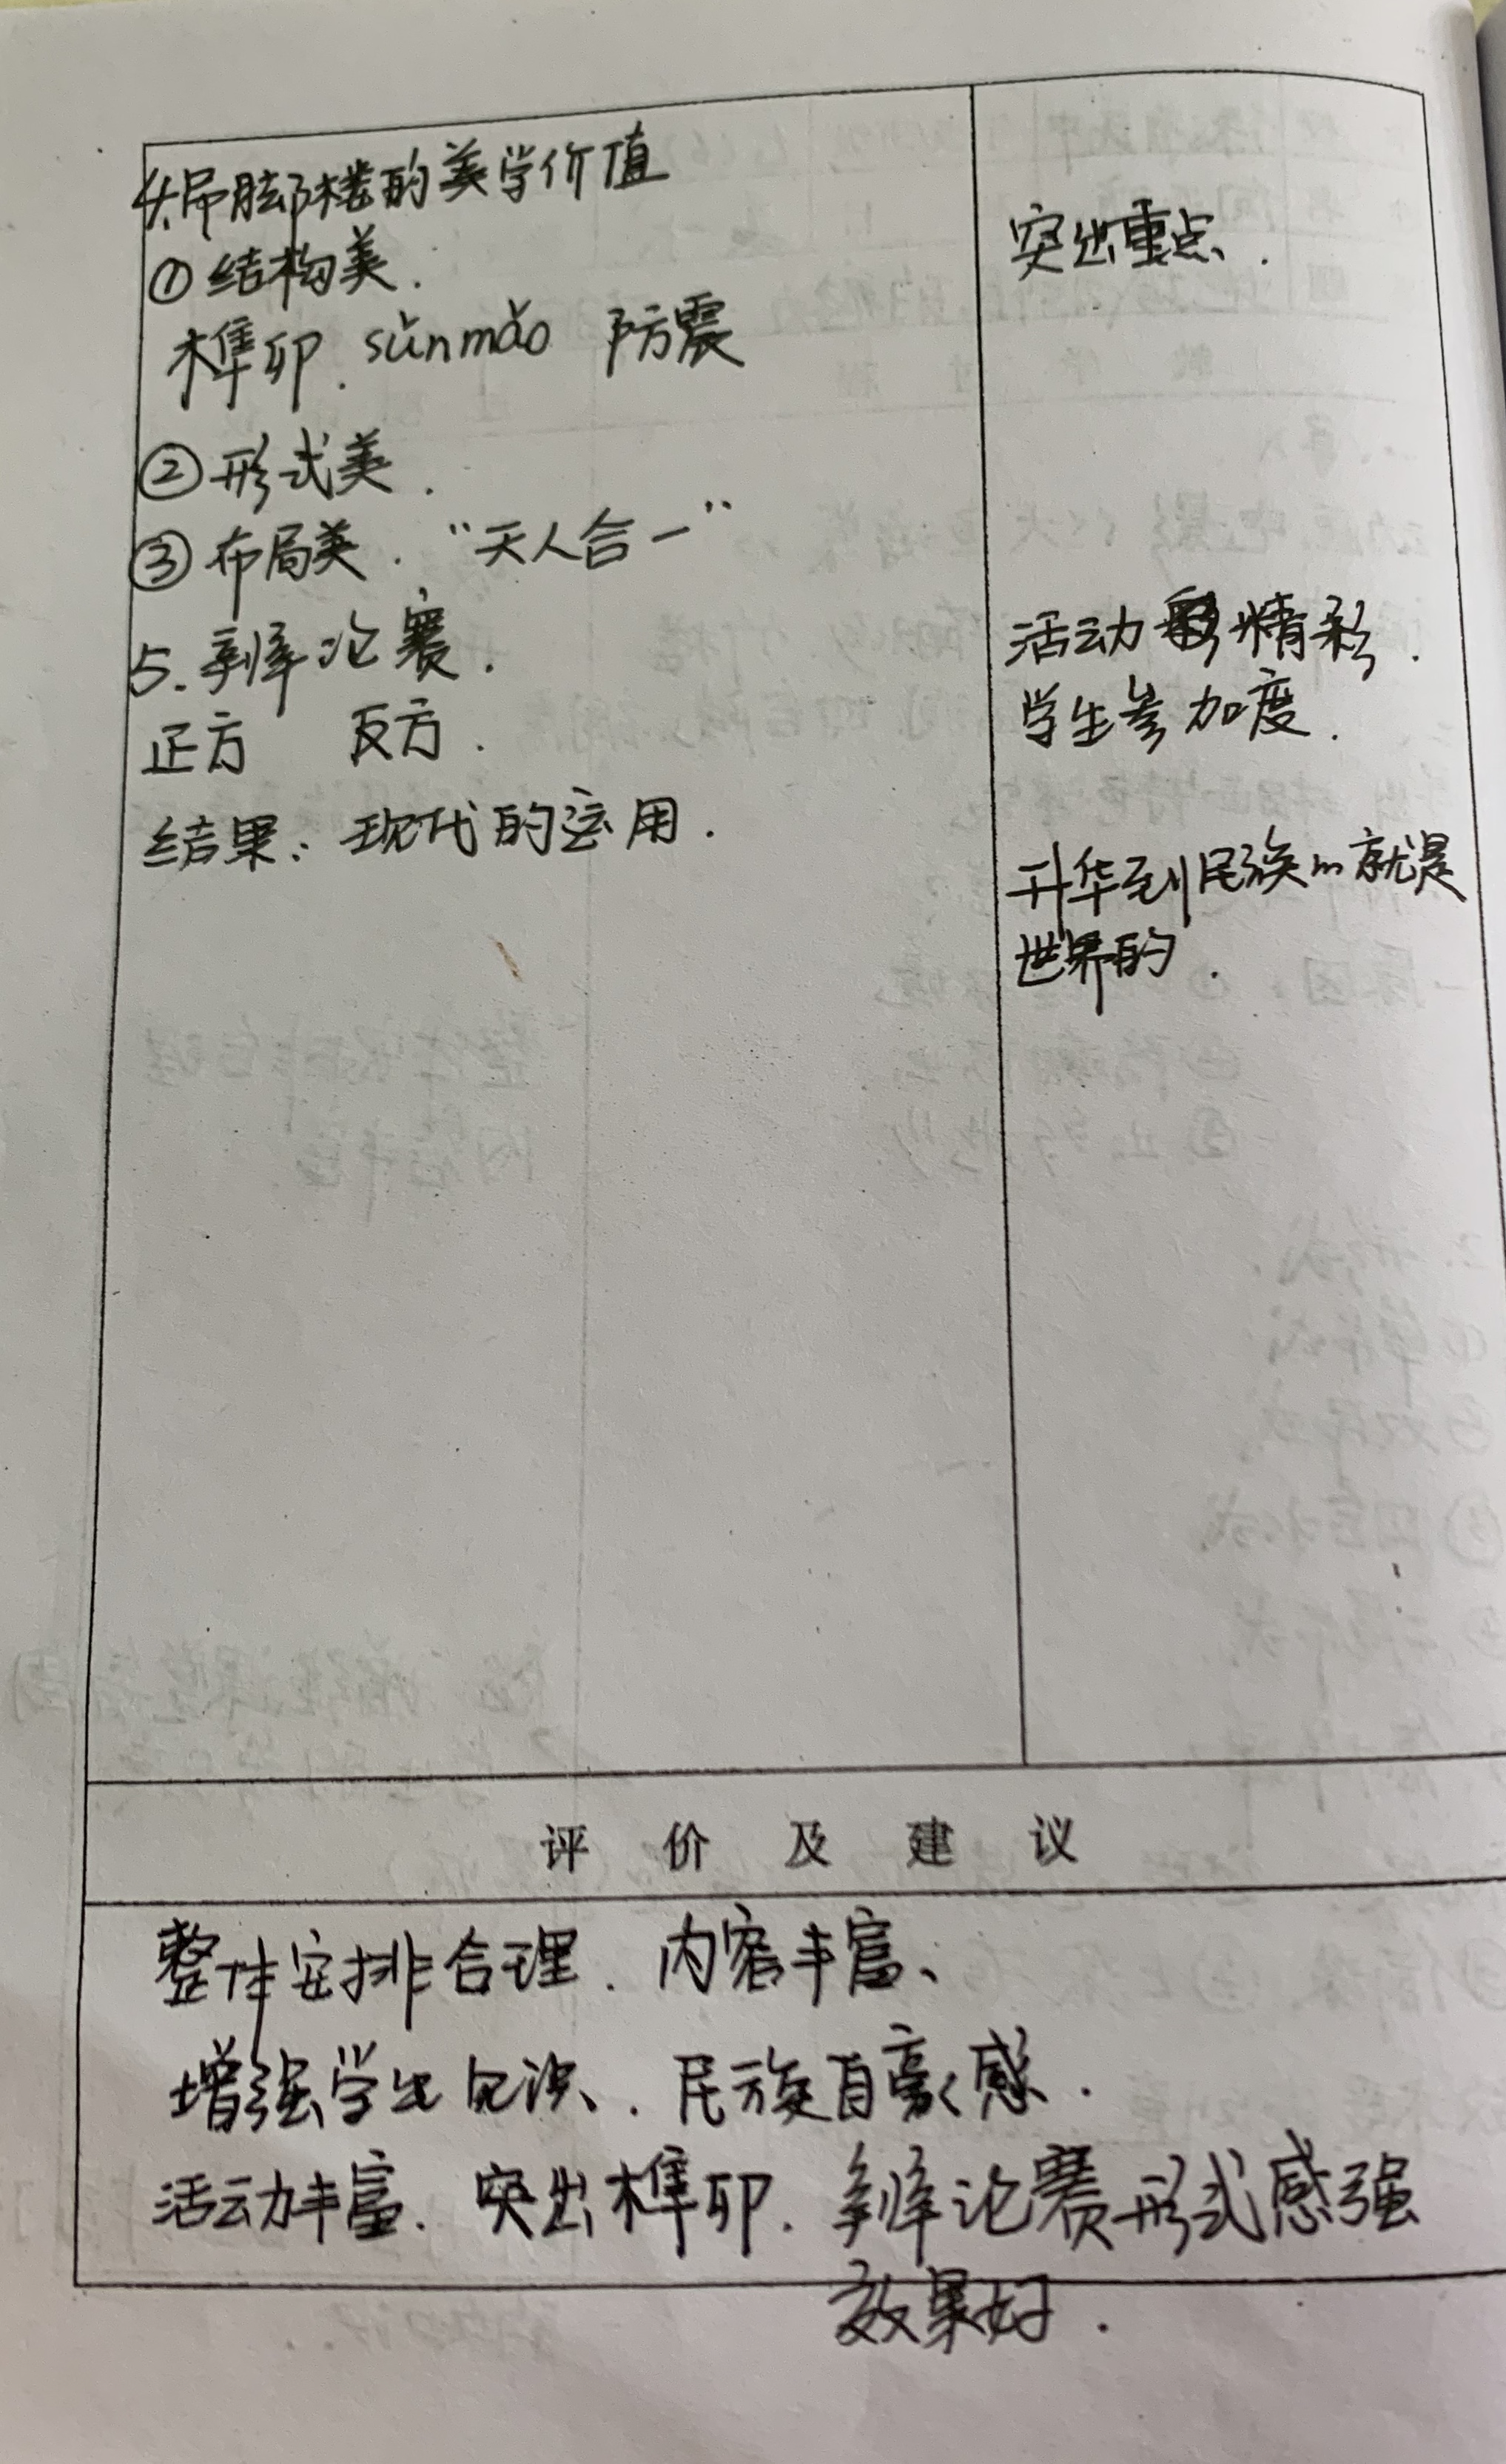 4.吊脚楼的美学价值
①结构美.
榫卯.sǔnmǎo 防震
②形式美.
③布局美."天人合一"
5.辩论赛.
正方 反方.
结果:现代的运用.
突出重点.
活动精彩.
学生参加度.
升华到民族的就是
世界的.
评价及建议
整体安排合理.内容丰富、
增强学生自豪感.民族自豪感.
活动丰富.突出榫卯.辩论赛形式感强
效果好.